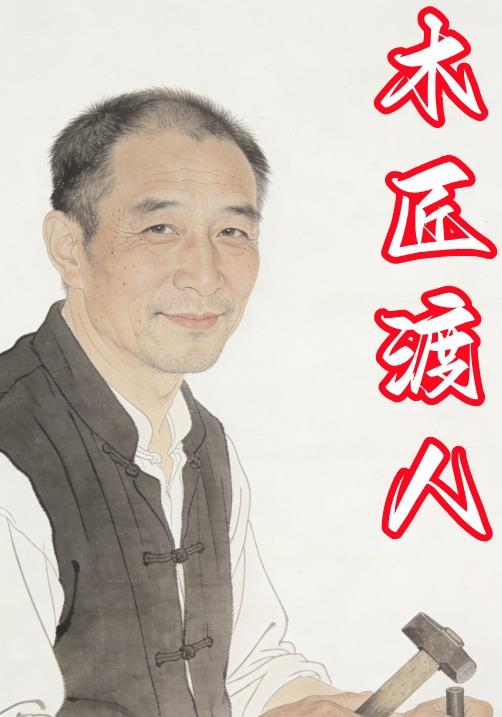 木匠渡人